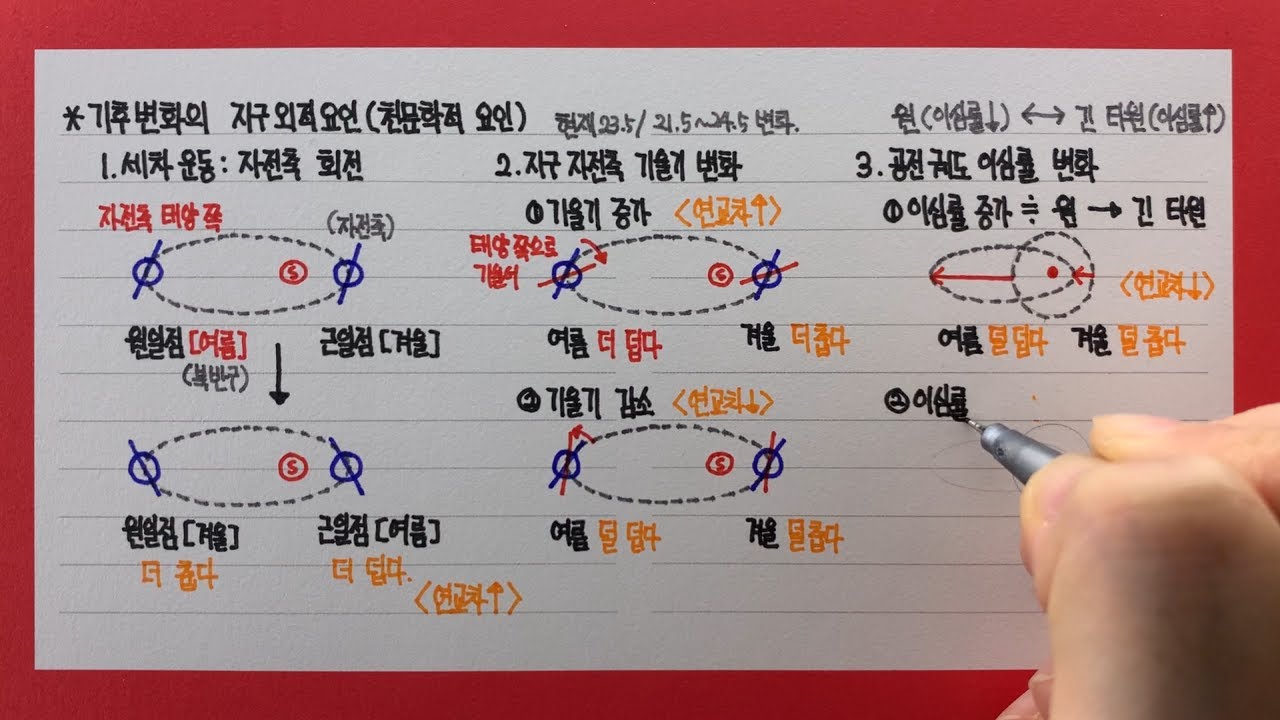 * 기후변화의 지구외적요인(천문학적 요인)
1. 세차 운동: 자전축 회전
자전축 태양 쪽
(자전축)
S
원일점 [여름]
(북반구)
근일점 [겨울]
S
원일점 [겨울]
더 춥다
근일점 [여름]
더 덥다.
<연교차↑>
현재 23.5 / 21.5~24.5 변화.
2. 지구 자전축 기울기 변화
① 기울기 증가 <연교차↑>
태양 쪽으로
기울어
S
여름 더 덥다
겨울 더 춥다
② 기울기 감소 <연교차↓>
S
여름 덜 덥다
겨울 덜 춥다
원(이심률↓) ↔ 긴 타원(이심률↑)
3. 공전 궤도 이심률 변화
① 이심률 증가 ≒ 원 → 긴 타원
<연교차↓>
여름 덜 덥다
겨울 덜 춥다
② 이심률